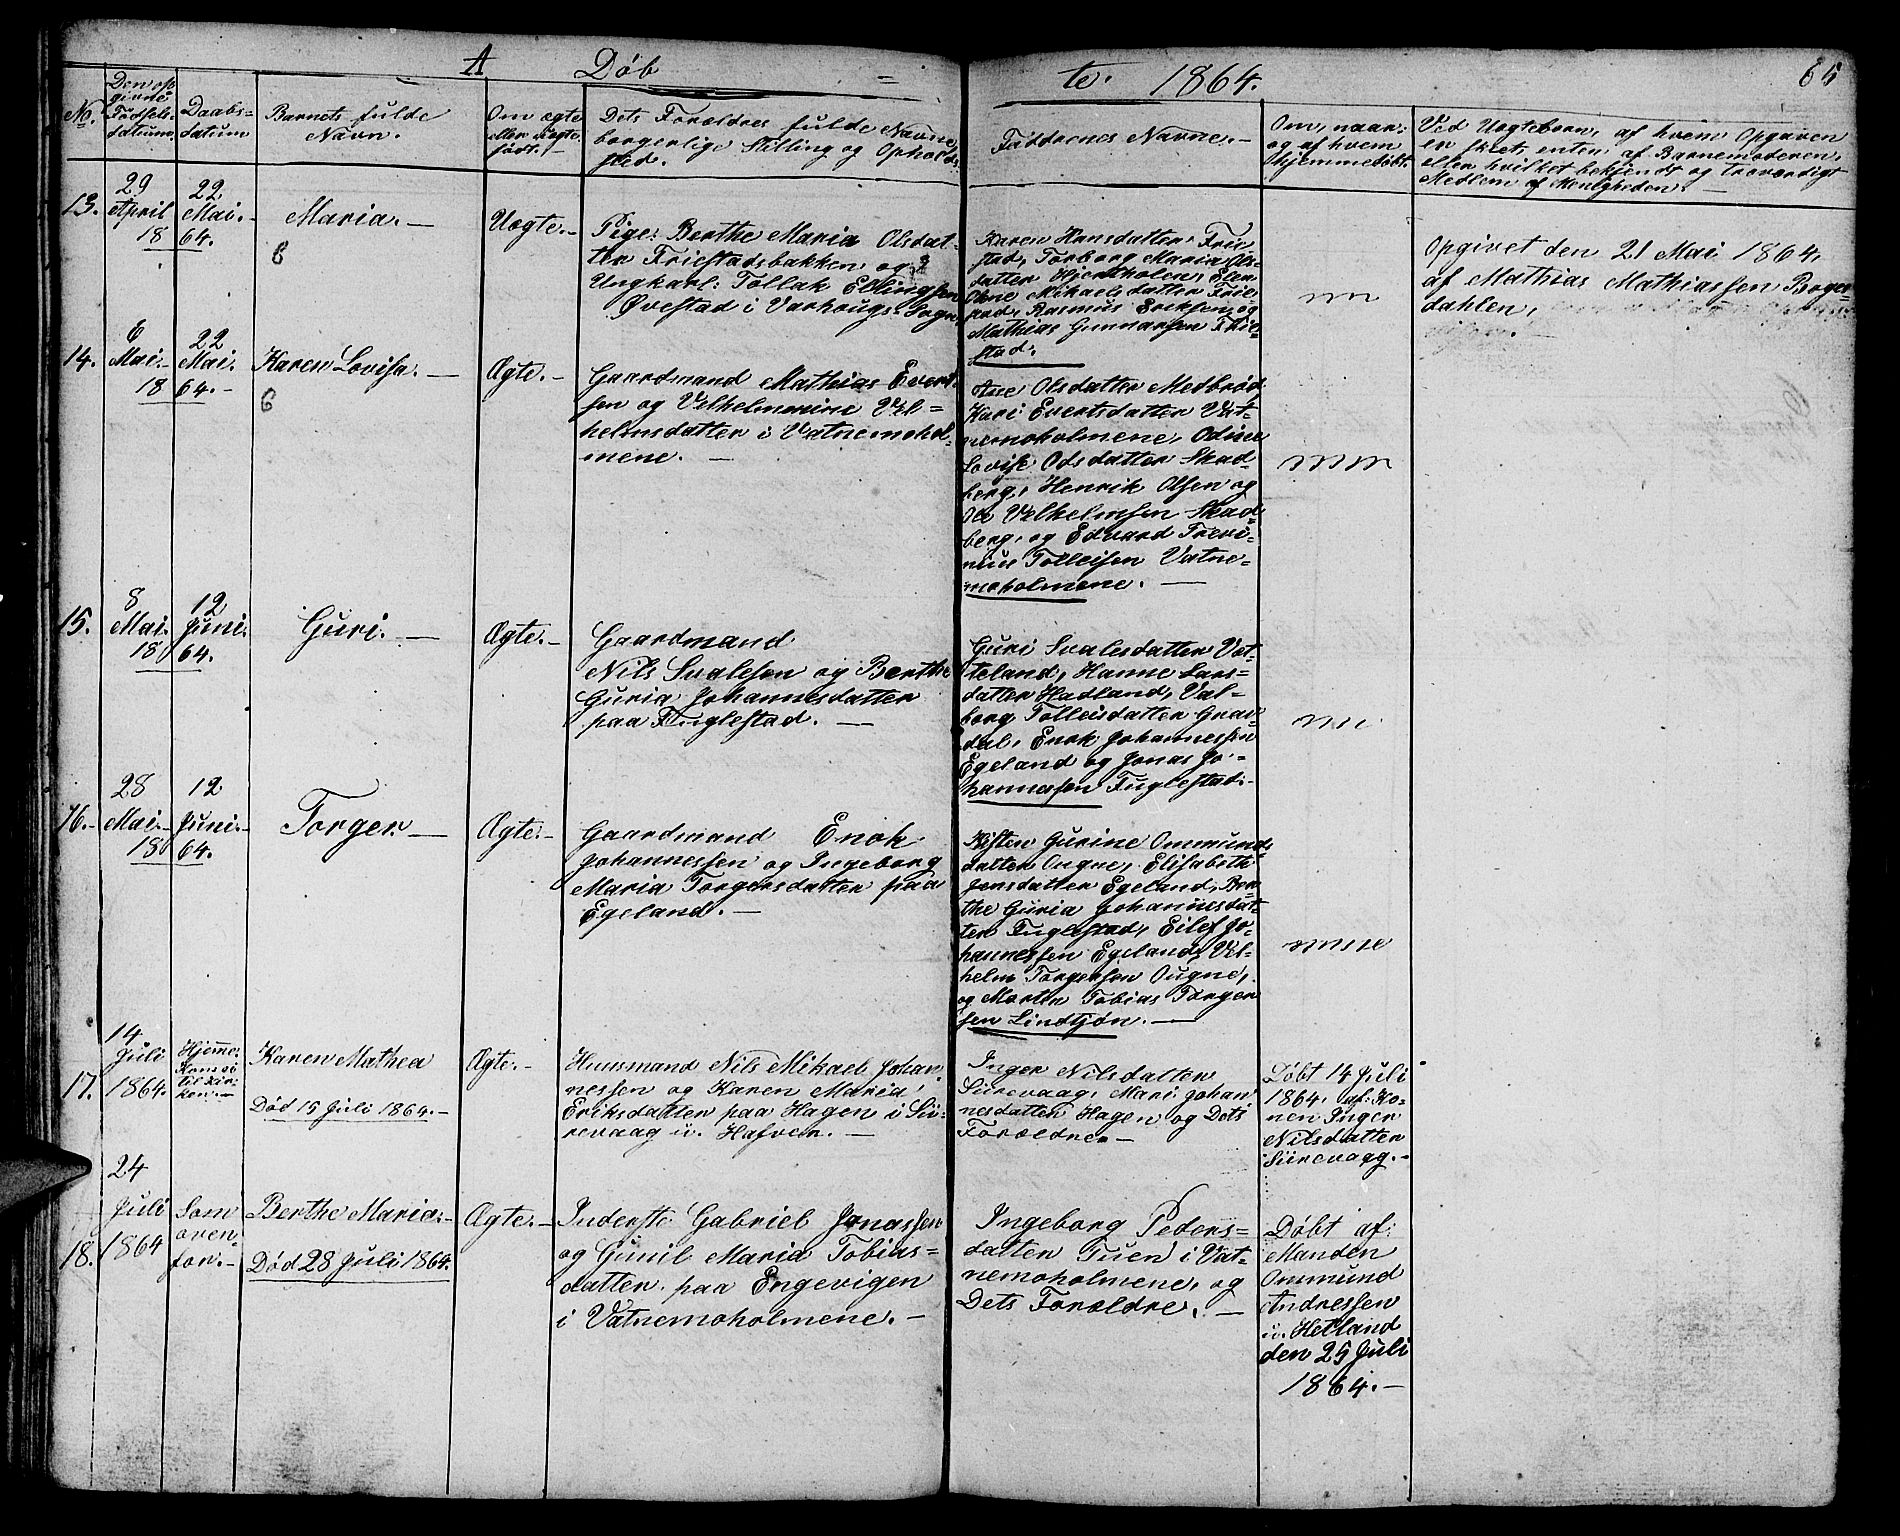 A Døb = te. 1864. 65
No.
Den op
givne
Fødsels
datum.
Daabs-
datum
Barnets fulde
Navn.
Om ægte
eller uægte
født.
Dets Forældres fulde Navne,
borgerlige Stilling og Opholds
sted.
Faddrenes Navne.
Om, naar
og af hvem
hjemmedøbt.
Ved Uægtebørn, af hvem Opgaven
er skeet, enten af Barnemoderen,
eller hvilket bekjendt og troværdigt
Medlem af Menigheden.
13.
29
April
18
22
Mai.
64.
Maria.
Uægte.
Pige: Berthe Maria Olsdat-
ter Friestadsbakken og
Ungkarl: Tollak Ellingsen
Øvestad i Varhougs Sogn,
Karen Hansdatter Frie
stad, Torborg Maria Ols-
datter Hjentholen, Elen
Olene Mikaelsdatter Frie
stad, Rasmus Eriksen og
Mathias Gunnarsen Frie-
stad.
Opgivet den 21 Mai 1864,
af Mathias Mathiassen Boger-
dahlen,
14.
6
Mai.
18
22
Mai.
64.
Karen Lovisa.
Ægte.
Gaardmand Mathias Evert
sen og Velhelmmine Vel-
helmsdatter i Vatnemohol-
mene.
Ane Olsdatter Medbrød
Kari Evertsdatter Vat-
nemoholmene, Odine
Lovise Odsdatter Skad-
berg, Henrik Olsen og
Ole Velhelmsen Skad-
berg, og Edvard Treri-
nius Tolleisen Vatne-
moholmene.
15.
8
Mai.
18
12
Juni.
64.
Guri.
Ægte.
Gaardmand
Nils Svalesen og Berthe
Guria Johannesdatter
paa Fuglestad.
Guri Svalesdatter Vat-
teland, Hanne Lars-
datter Hadland, Val-
borg Tolleisdatter Grav-
dal, Enok Johannessen
Egeland og Jonas Jo-
hannessen Fuglestad.
16.
28
Mai.
18
12
Juni.
64.
Torger
Ægte.
Gaardmand Enok
Johannessen og Ingeborg
Maria Torgersdatter paa
Egeland.
Kisten Gurine Ommunds
datter Ougne, Elisabeth
Jensdatter Egeland, Ber
the Guria Johannesdat-
ter Fuglestad, Eilef Jo-
hannessen Egeland, Vel-
helm Torgersen Ougne,
og Morten Tobias Torger
sen Lindtjøn.
17.
14
Juli
1864.
Hjemme.
Kom ei
til Kir-
ken.
Karen Mathea
Død 15 Juli 1864.
Ægte.
Huusmand Nils Mikael Johan-
nessen og Karen Maria
Eriksdatter paa Hagen i Sii-
revaag u. Hafven.
Inger Nilsdatter
Siirevaag, Mari Johan
nesdatter Hagen og Dets
Forældre
Døbt 14 Juli
1864, af Ko-
nen Inger
Nilsdatter
Siirevaag.
18.
24
Juli
1864
Som
oven-
for.
Berthe Maria.
Død 28 Juli 1864.
Ægte.
Inderste Gabriel Jonassen
og Gunil Maria Tobias-
datter paa Engevigen
i Vatnemoholmene.
Ingeborg Peders-
datter Tuen i Vat-
nemoholmene, og
Dets Forældre.
Døbt af
Manden
Ommund
Andressen
u. Hetland
den 25 Juli
1864.